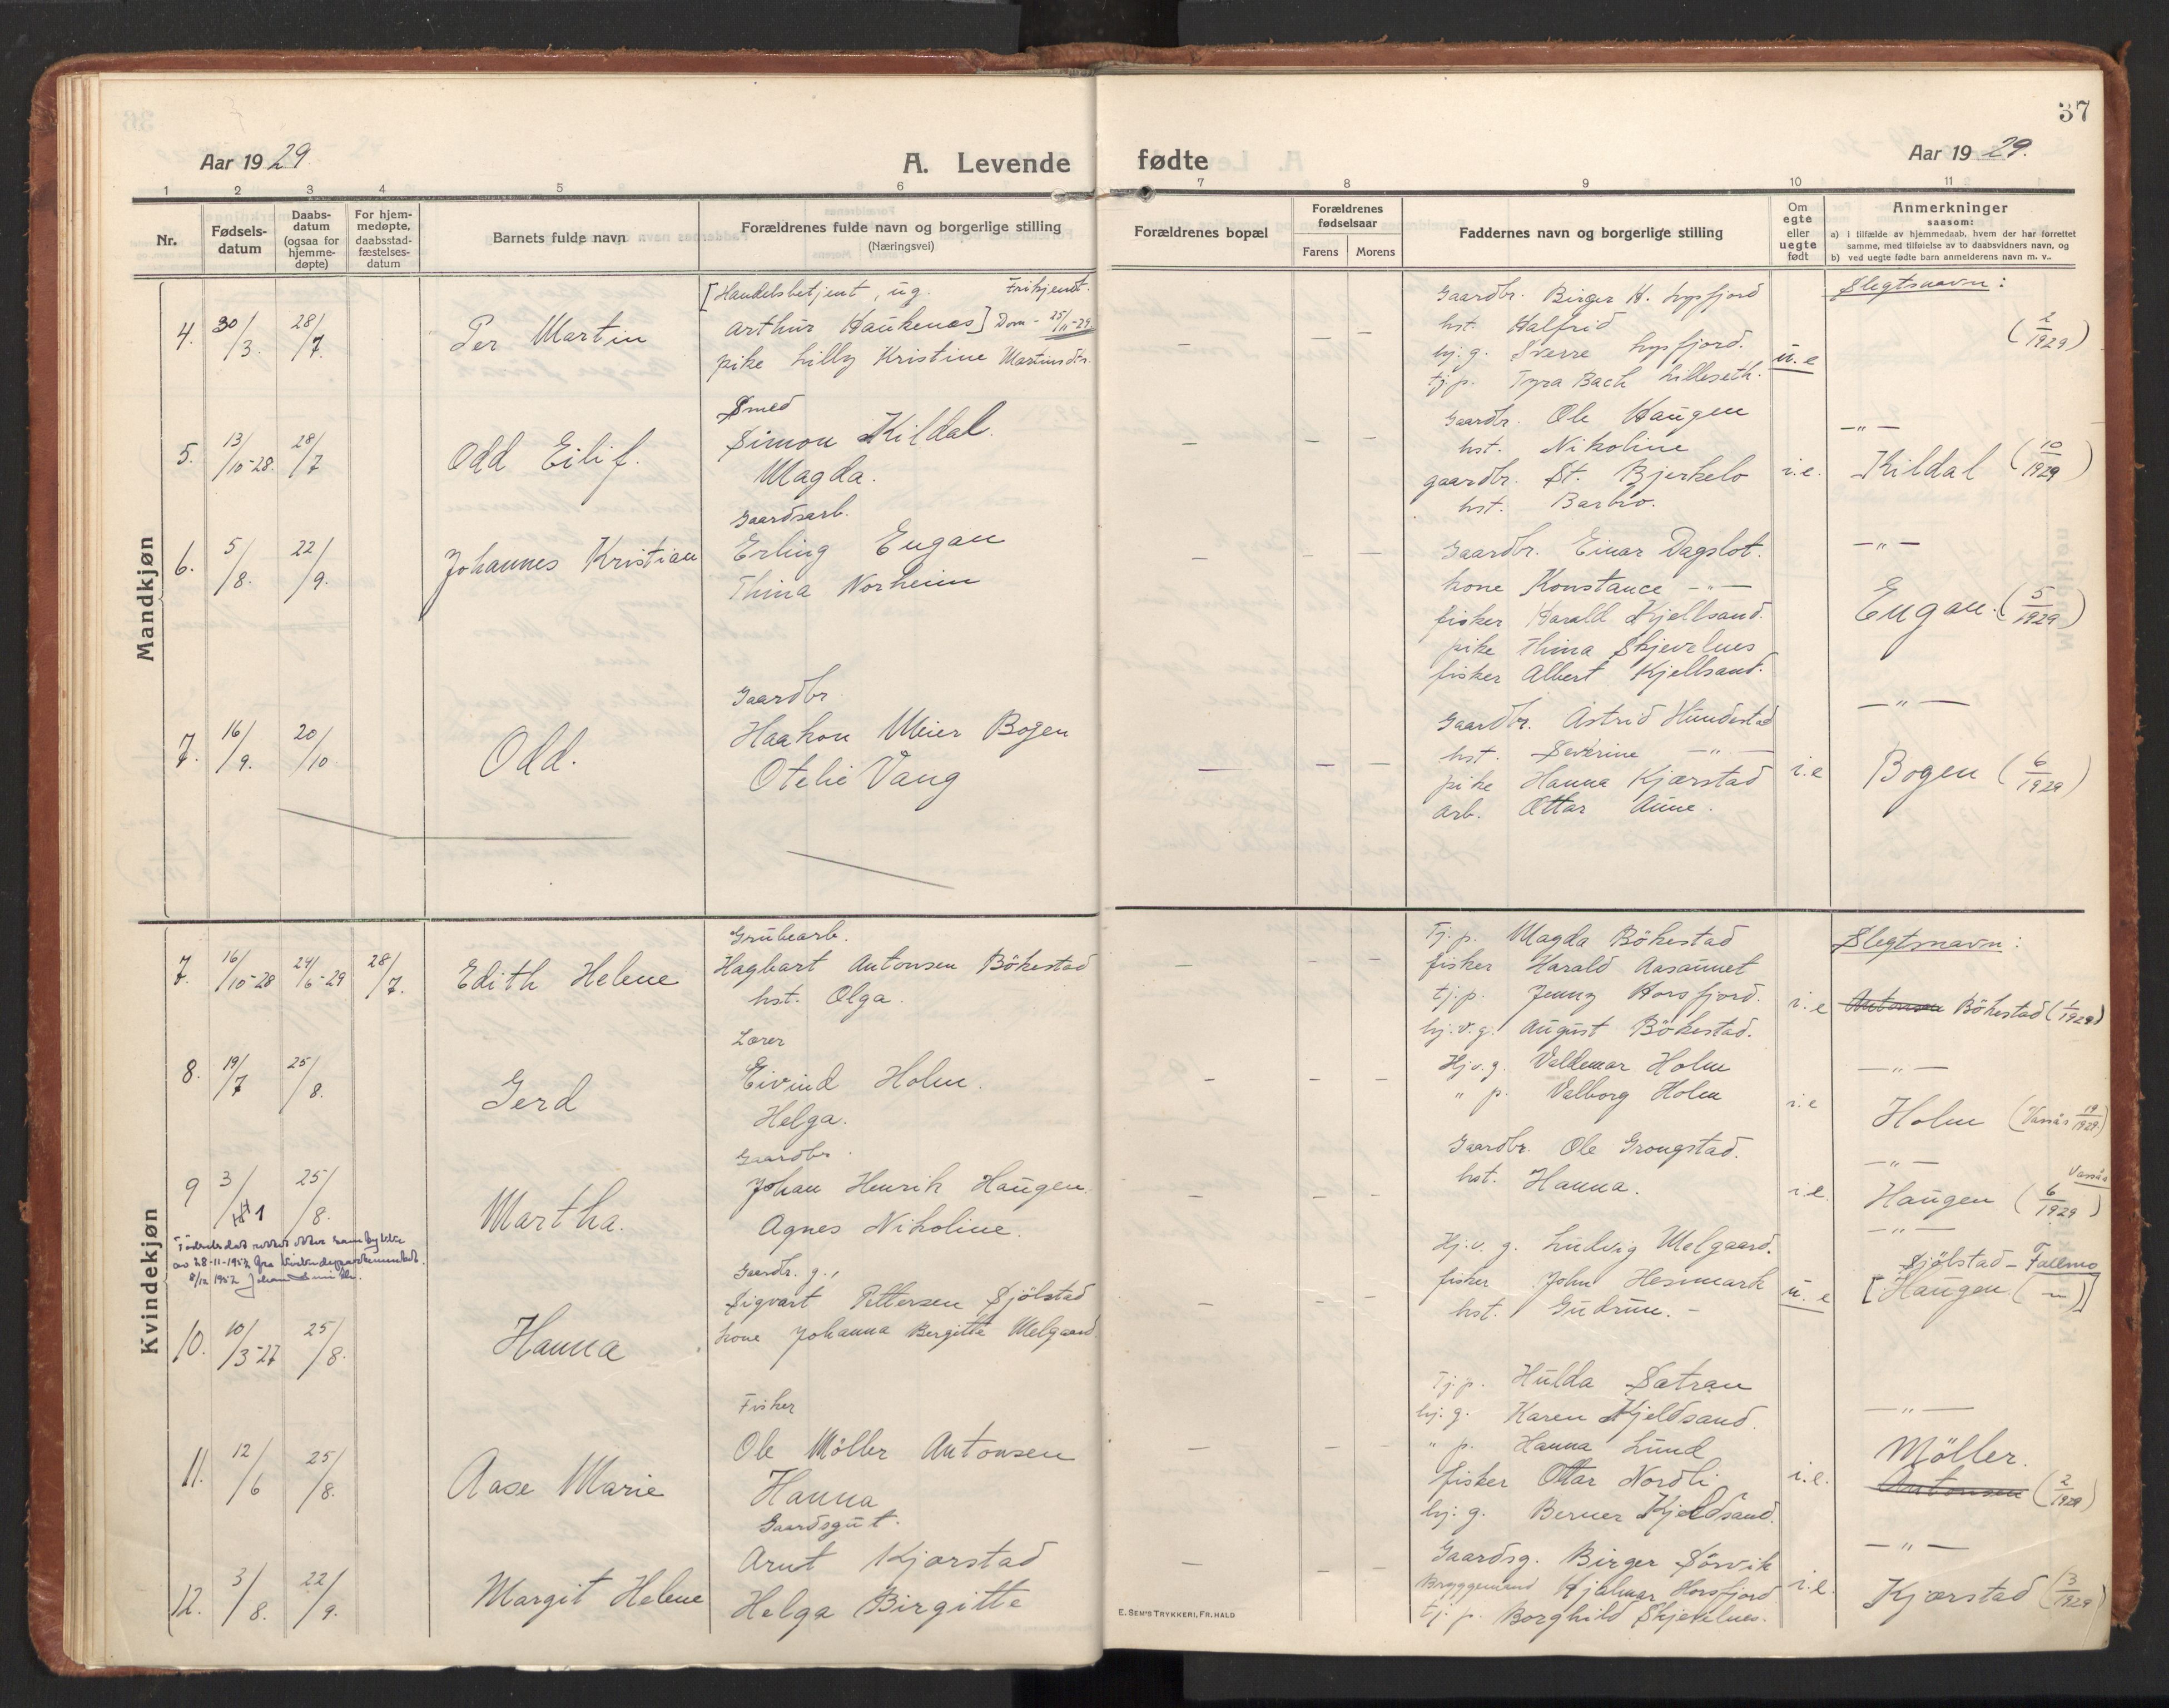 37
Aar 1929.
A. Levende fødte
Aar 1929.
1 2 3 4 5 6 7 8 9 10 11
Nr.
Fødsels-
datum
Daabs-
datum
(ogsaa for
hjemme-
døpte)
For hjem-
medøpte,
daabsstad-
fæstelses-
datum
Barnets fulde navn
Forældrenes fulde navn og borgerlige stilling
(Næringsvei)
Forældrenes bopæl
Forældrenes
fødselsaar
Farens Morens
Faddernes navn og borgerlige stilling
Om
egte
eller
uegte
født
Anmerkninger
saasom:
a) i tilfælde av hjemmedaab, hvem der har forrettet
samme, med tilføielse av to daabsvidners navn, og
b) ved uegte fødte barn anmelderens navn m. v..
Mandkjøn
4. 30/3. 28/7. Per Martin
[Handelsbetjent, ug. Frikjendt.
Arthur Haukenes] Dom - 25/11-29
pike Lilly Kristine Martinsdtr.
— — —
Gaardbr. Birger H. Lysfjord
hst. Halfrid
hj. g. Sverre Lysfjord.
tj. p. Tyra Bach Lilleseth.
u. e
Slegtsnavn:
(2/1929)
5. 13/10-28. 28/7 Odd Eilif.
Smed
Simon Kildal.
Magda.
— — —
Gaardbr. Ole Haugen
hst. Nikoline
gaardbr. St. Bjerkelo
hst. Barbro.
i.e.
—"—
Kildal (10/1929)
6. 5/8. 22/9. Johannes Kristian
Gaardsarb.
Erling Engan
Thina Norheim
— — —
Gaardbr. Einar Dagslot.
kone Konstance —"—
fisker Harald Kjellsand.
pike Thina Skjevelnes
fisker Albert Kjellsand.
—"—
Engan. (5/1929)
7. 16/9. 20/10. Odd.
Gaardbr.
Haakon Meier Bogen
Otelie Vang
— — —
Gaardbr. Astrid Hundestad
hst. Severine —"—
pike Hanna Kjærstad
arb. Ottar Aune.
i.e
—"—
Bogen (6/1929)
Kvindekjøn
7. 16/10-28 24/6-29 28/7. Edith Helene
Grubearb.
Hagbart Antonsen Bökestad
hst. Olga.
— — —
Tj. p. Magda Bökestad
fisker Harald Aasaunet
tj. p. Jenny Horsfjord.
hj. v. g. August Bökestad.
i.e
Slegtsnavn:
Antonsen Bökestad (1/1929)
8. 19/7 25/8. Gerd
Lærer
Eivind Holm.
Helga.
— — —
Hj.v.g. Valdemar Holm
" p. Valborg Holm
i.e
—"—
Holm (Vassås 19/1929.)
9 3/1 25/8. Martha.
Fødselsdat. rettet etter samtykke
av 28-11-1952 fra Kirkedepartementet.
8/12 1952
Gaardbr.
Johan Henrik Haugen.
Agnes Nikoline.
— — —
Gaardbr. Ole Grongstad.
hst. Hanna.
i.e.
—"—
Vassås
Haugen (6/1929)
10. 10/3-27 25/8. Hanna
Gaardbr. g.,
Sigvart Pettersen Sjölstad
kone Johanna Bergitte Melgaard.
— — —
Hj. v. g. Ludvig Melgaard.
fisker John Hesmark
hst. Gudrun. -
u. e
—"—
Sjölstad - Fallmo
[Haugen. (—"—)]
11. 12/6 25/8. Aase Marie
Fisker
Ole Möller Antonsen
Hanna
— — —
Tj. p. Hulda Satran
hj. g. Karen Kjeldsand.
" p. Hanna Lund
fisker Ottar Nordli
hj. g. Berner Kjeldsand.
i.e.
—"—
Möller.
Antonsen (2/1929)
12. 3/8. 22/9. Margit Helene
Gaardsgut.
Arnt Kjærstad
Helga Birgitte
— — —
Gaardsg. Birger Sörvik
Bryggemand Hjalmar Horsfjord
tj. p. Borghild Skjevelnes.
i.e.
—"—
Kjærstad (3/1929)
E. SEM'S TRYKKERI, FR.HALD